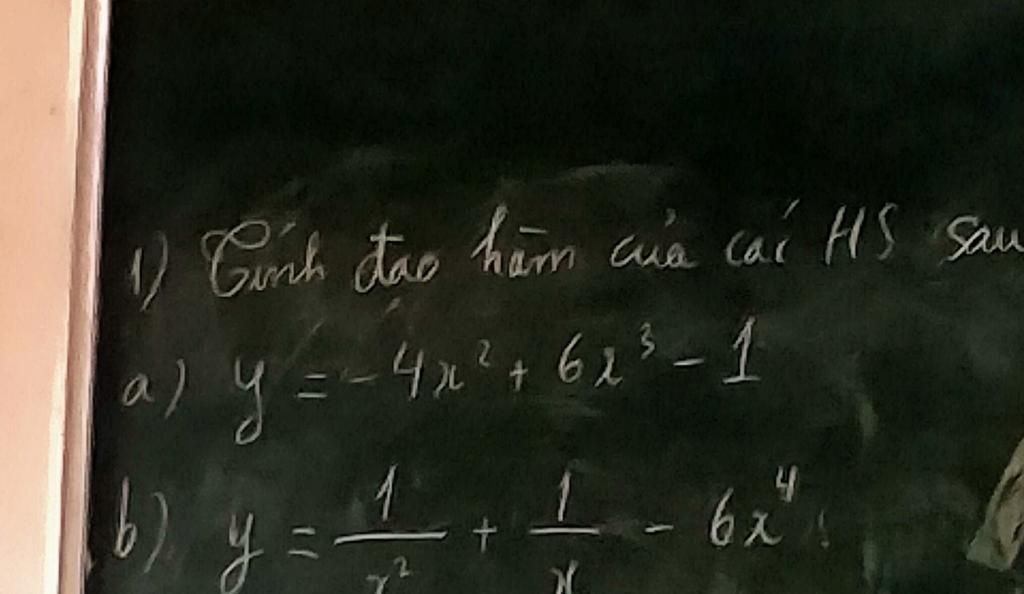 1) Tính đạo hàm của các HS sau
a) y = -4x² + 6x³ - 1
b) y = 1/x² + 1/x - 6x⁴